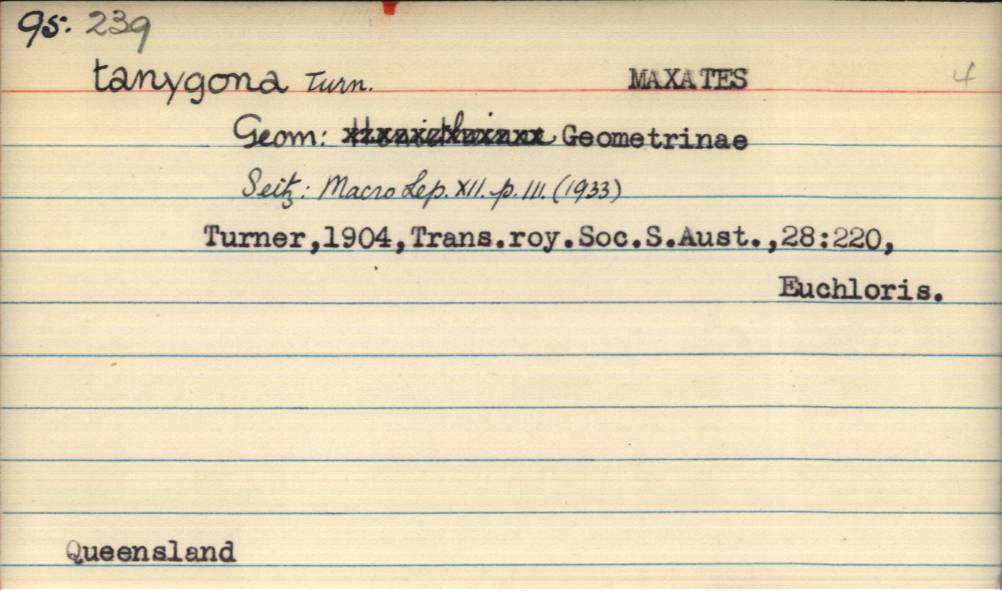 95. 239
tanygona Turn. MAXATES 4
Geom: Geometrinae
Seitz: Macro Lep. XII. p. 111. (1933)
Turner,1904,Trans.roy.Soc.S.Aust.,28:220,
Euchloris.
Queensland